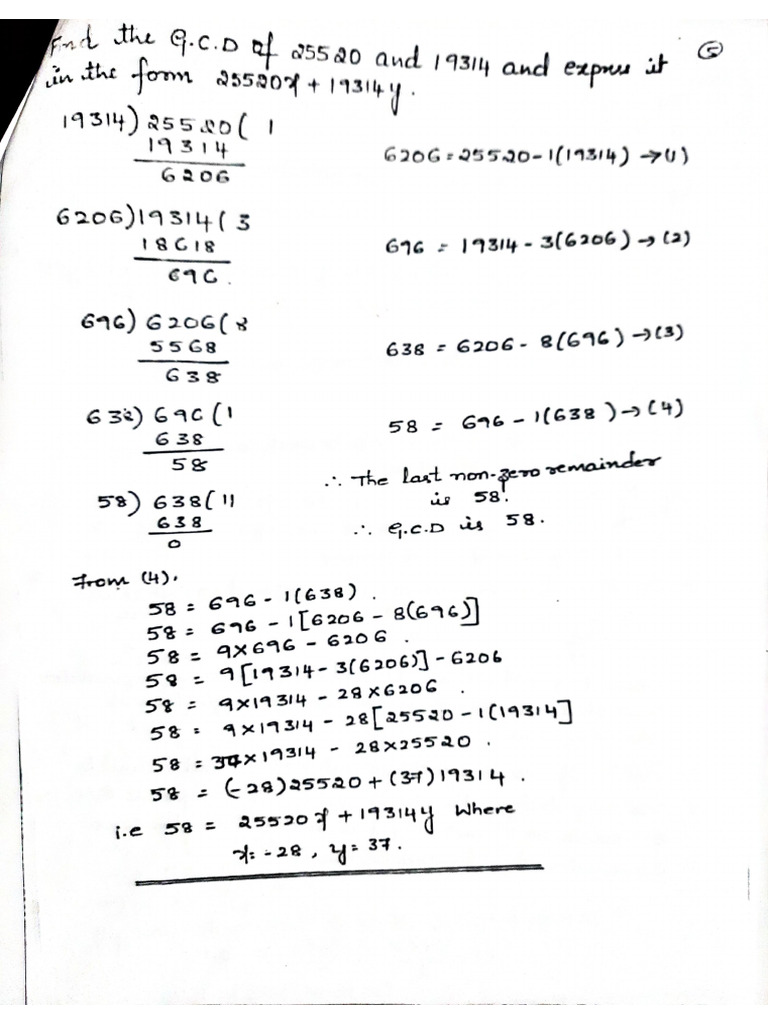 Find the G.C.D of 25520 and 19314 and express it
in the form 25520x + 19314y.
5
19314) 25520 ( 1
19314
6206
6206 = 25520 - 1(19314) → (1)
6206) 19314 ( 3
18618
696.
696 = 19314 - 3(6206) → (2)
696) 6206 ( 8
5568
638
638 = 6206 - 8(696) → (3)
638) 696 ( 1
638
58
58 = 696 - 1(638) → (4)
58) 638 ( 11
638
0
∴ The last non-zero remainder
is 58.
∴ G.C.D is 58.
From (4),
58 = 696 - 1(638).
58 = 696 - 1[6206 - 8(696)]
58 = 9×696 - 6206.
58 = 9[19314 - 3(6206)] - 6206
58 = 9×19314 - 28×6206.
58 = 9×19314 - 28[25520 - 1(19314]
58 = 37×19314 - 28×25520.
58 = (-28)25520 + (37)19314.
i.e 58 = 25520x + 19314y where
x = -28, y = 37.